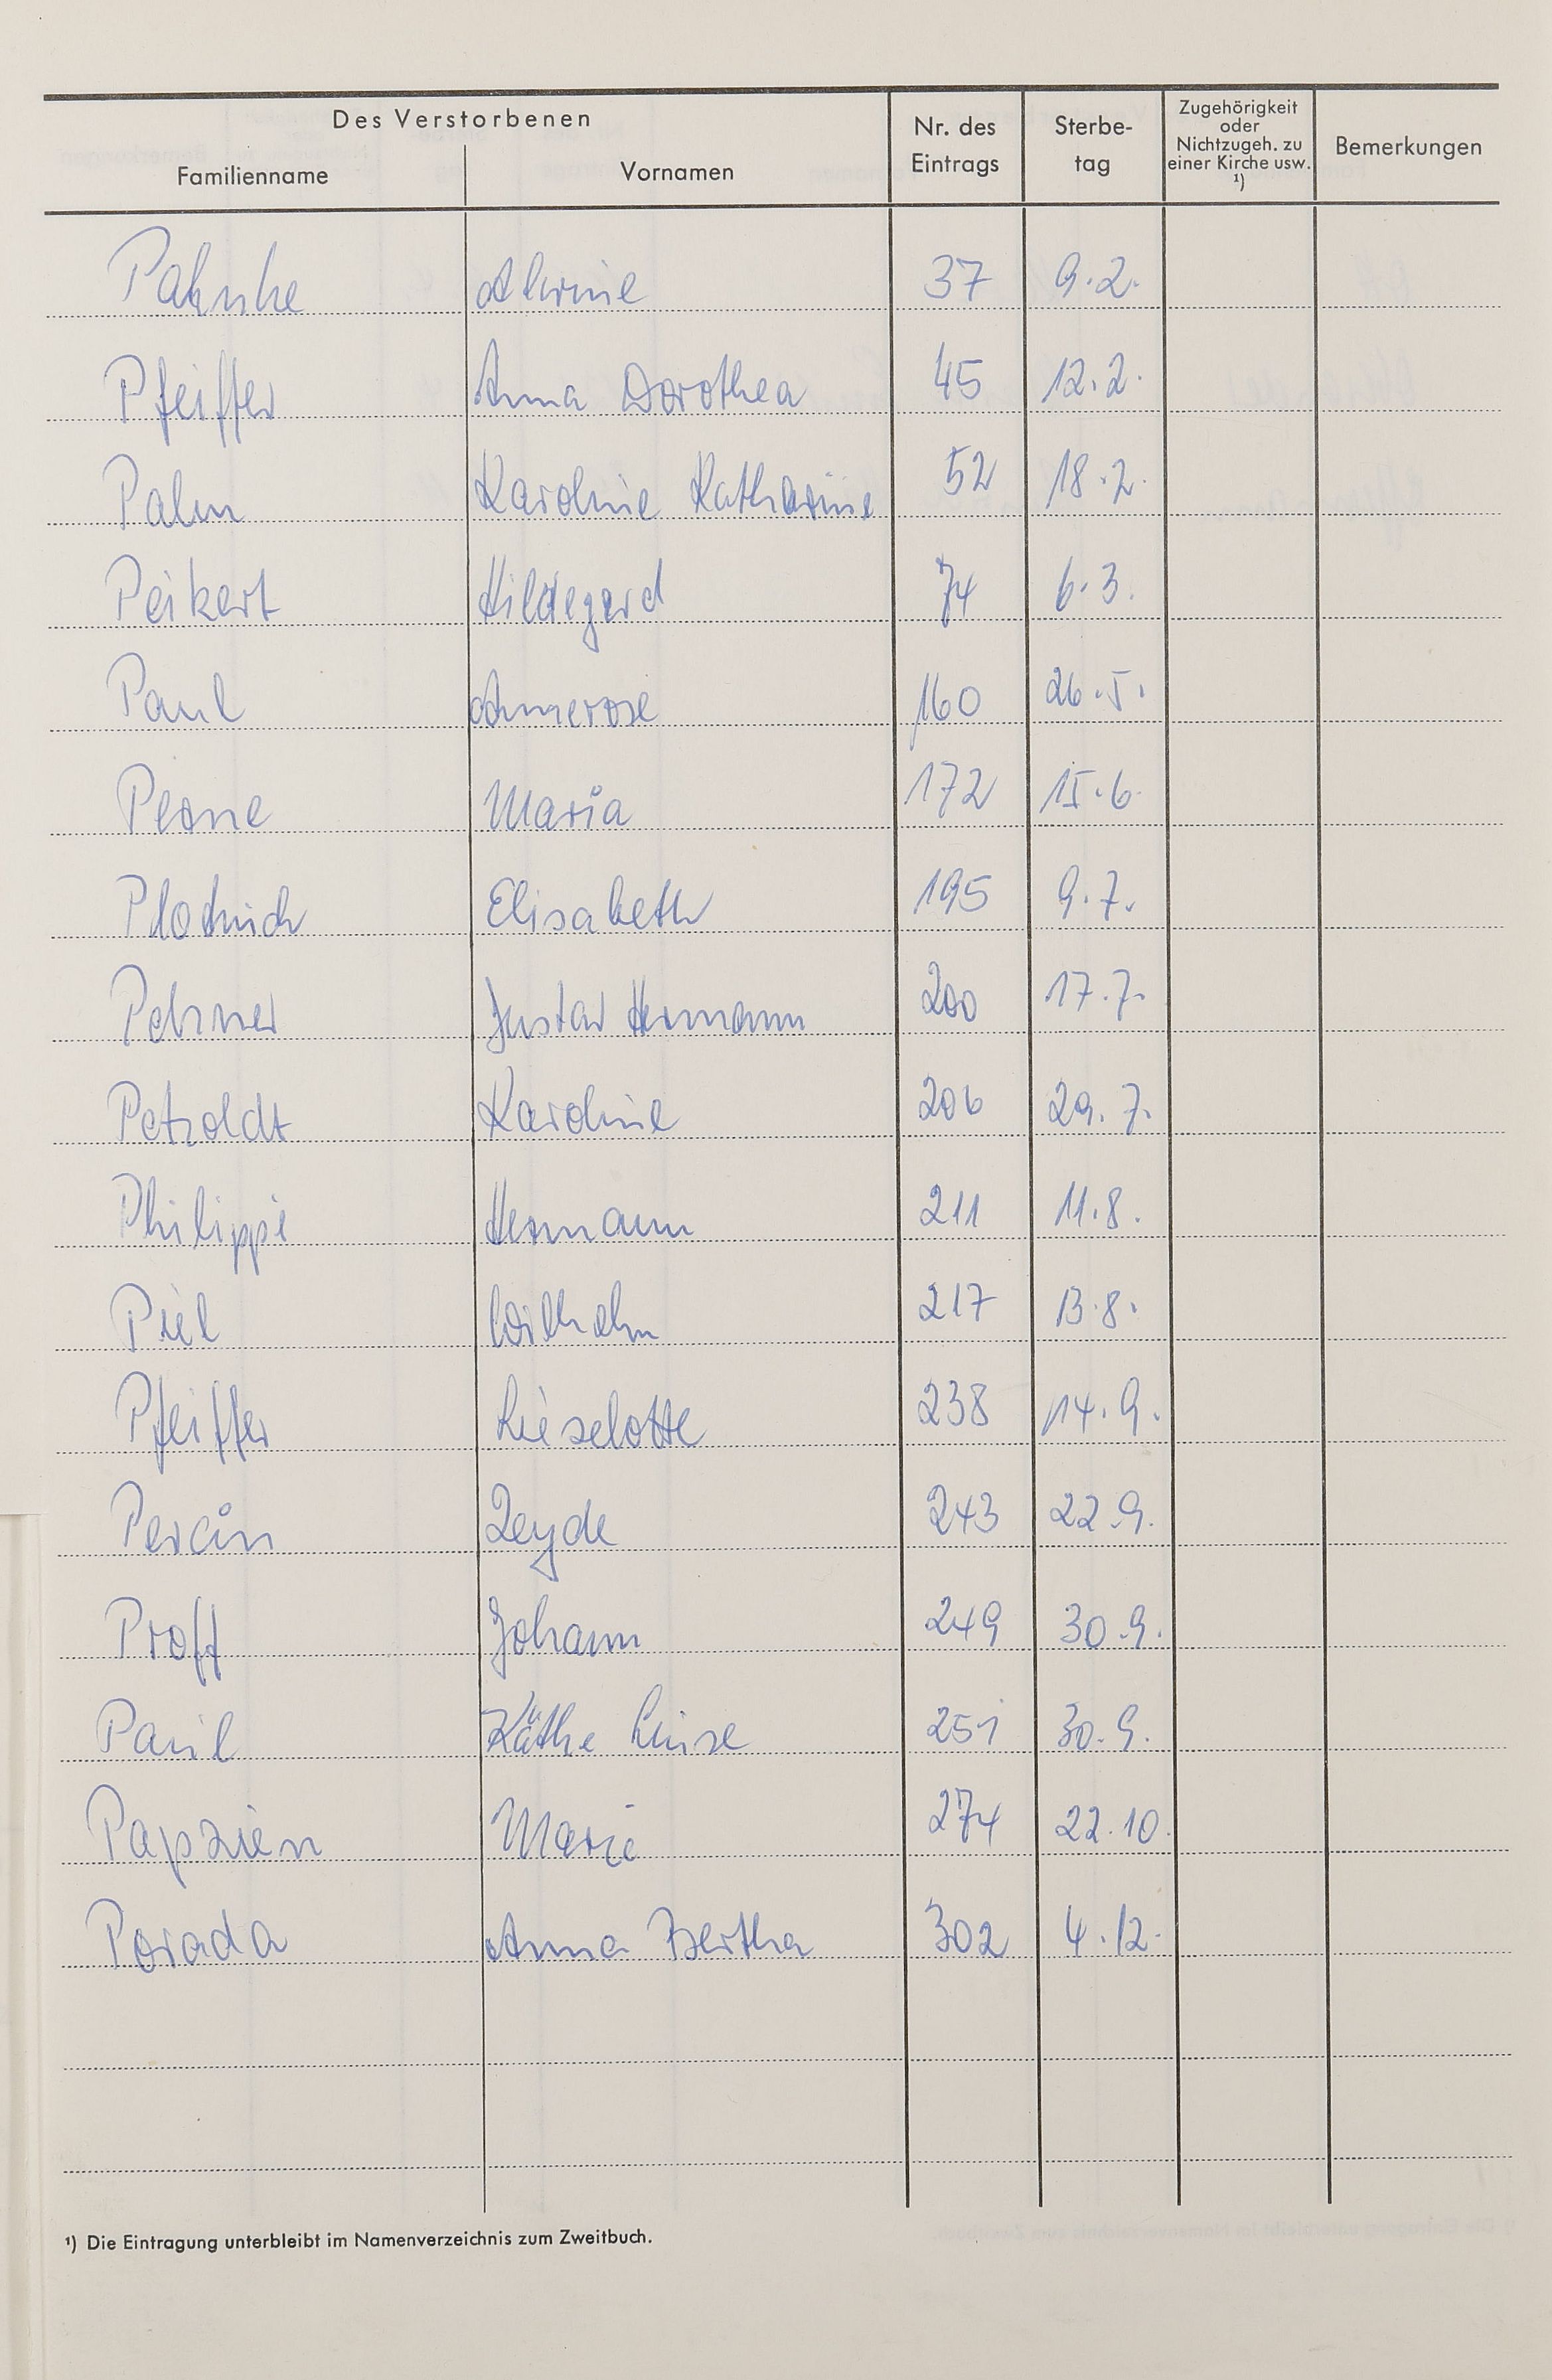 Des Verstorbenen
Familienname Vornamen Nr. des Eintrags Sterbe-tag Zugehörigkeit oder Nichtzugeh. zu einer Kirche usw. ¹) Bemerkungen
Pahnke Alwine 37 9.2.
Pfeiffer Anna Dorothea 45 12.2.
Palm Karoline Katharine 52 18.2.
Peikert Hildegard 74 6.3.
Paul Annerose 160 26.5.
Perne Maria 172 15.6.
Elisabeth 195 9.7.
Pelzner Gustav Hermann 200 17.7.
Petzoldt Karoline 206 29.7.
Philippi Hermann 211 11.8.
Piel Wilhelm 217 13.8.
Pfeiffer Lieselotte 238 14.9.
Percin Zeyde 243 22.9.
Proff Johann 249 30.9.
Paul Käthe Luise 251 30.9.
Papzien Marie 274 22.10.
Porada Anna Bertha 302 4.12.
¹) Die Eintragung unterbleibt im Namenverzeichnis zum Zweitbuch.